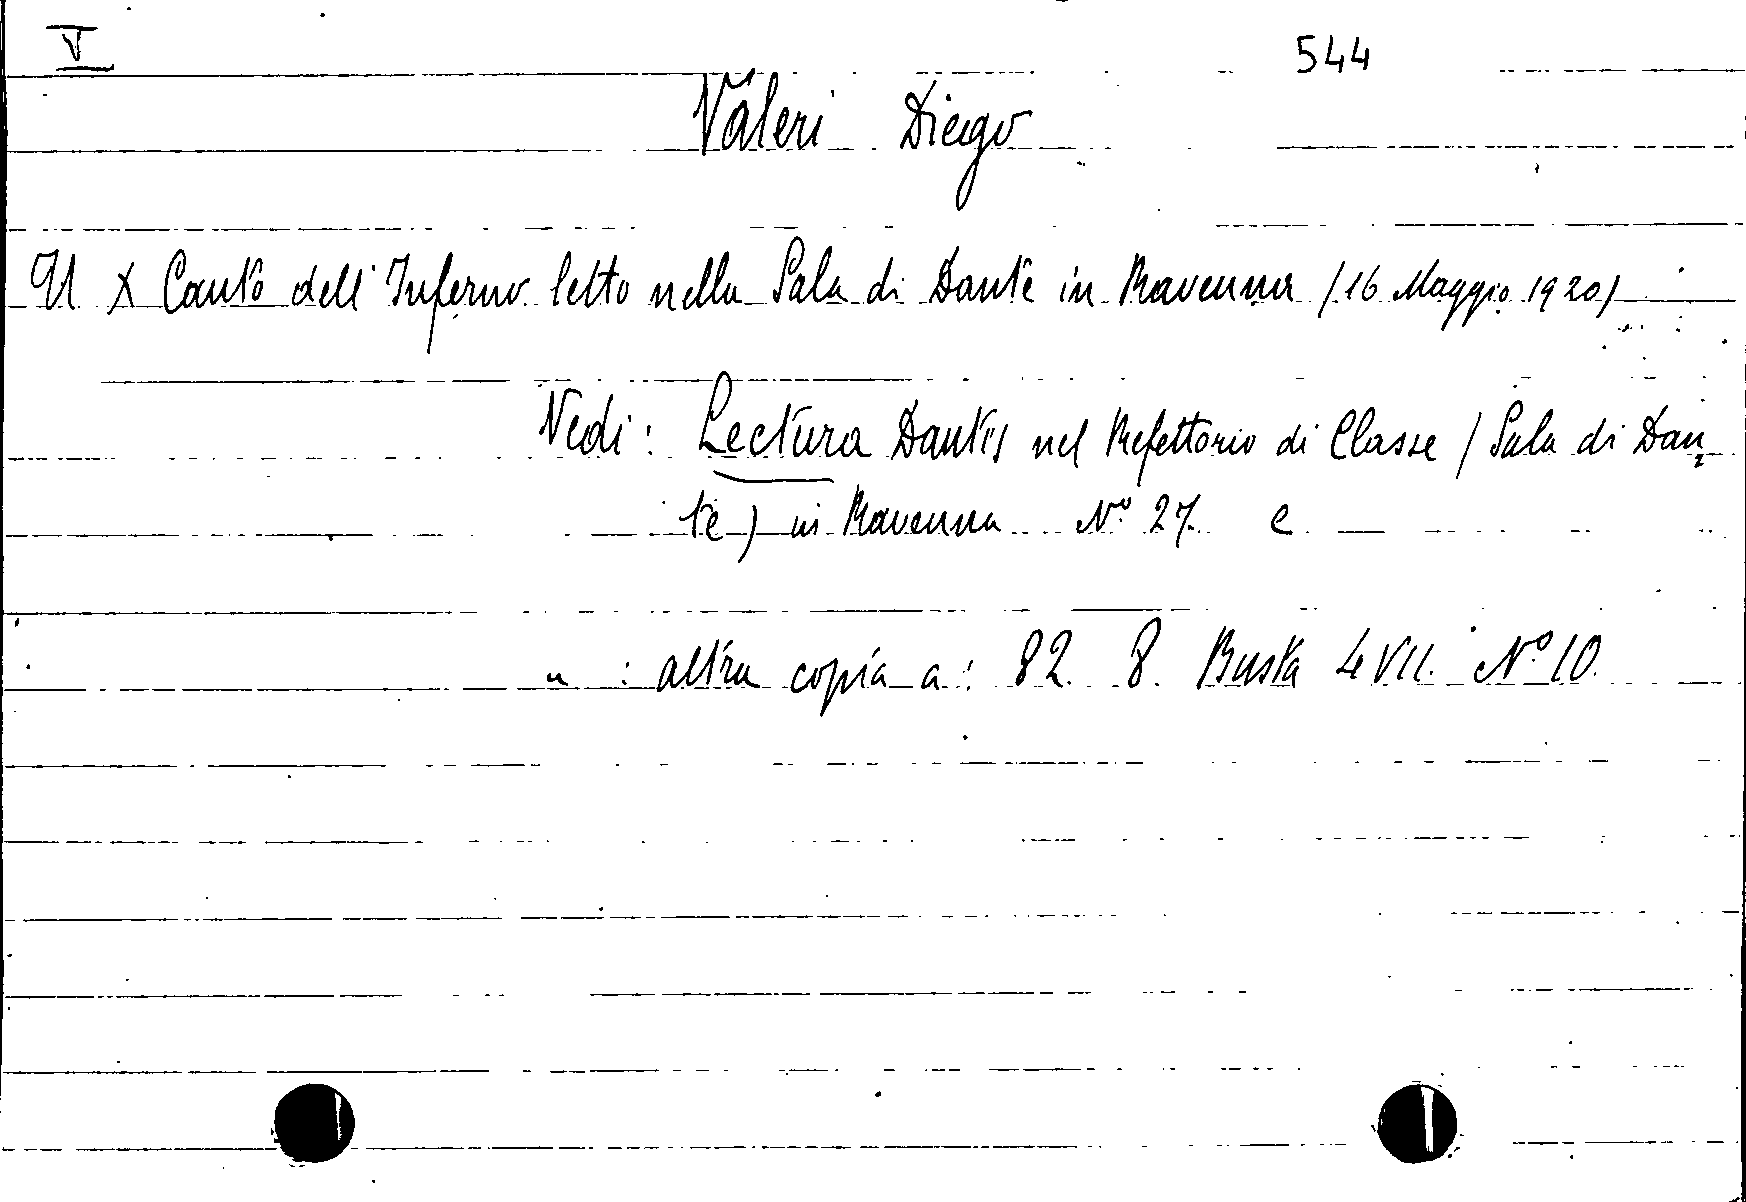 V 544
Valeri Diego
Il X Canto dell'Inferno letto nella Sala di Dante in Ravenna (16 Maggio 1920)
Vedi: Lectura Dantis nel Refettorio di Classe (Sala di Dan-
te) in Ravenna Nº 27. e
" : altra copia a: 82. 8. Busta 4 VII. Nº 10.